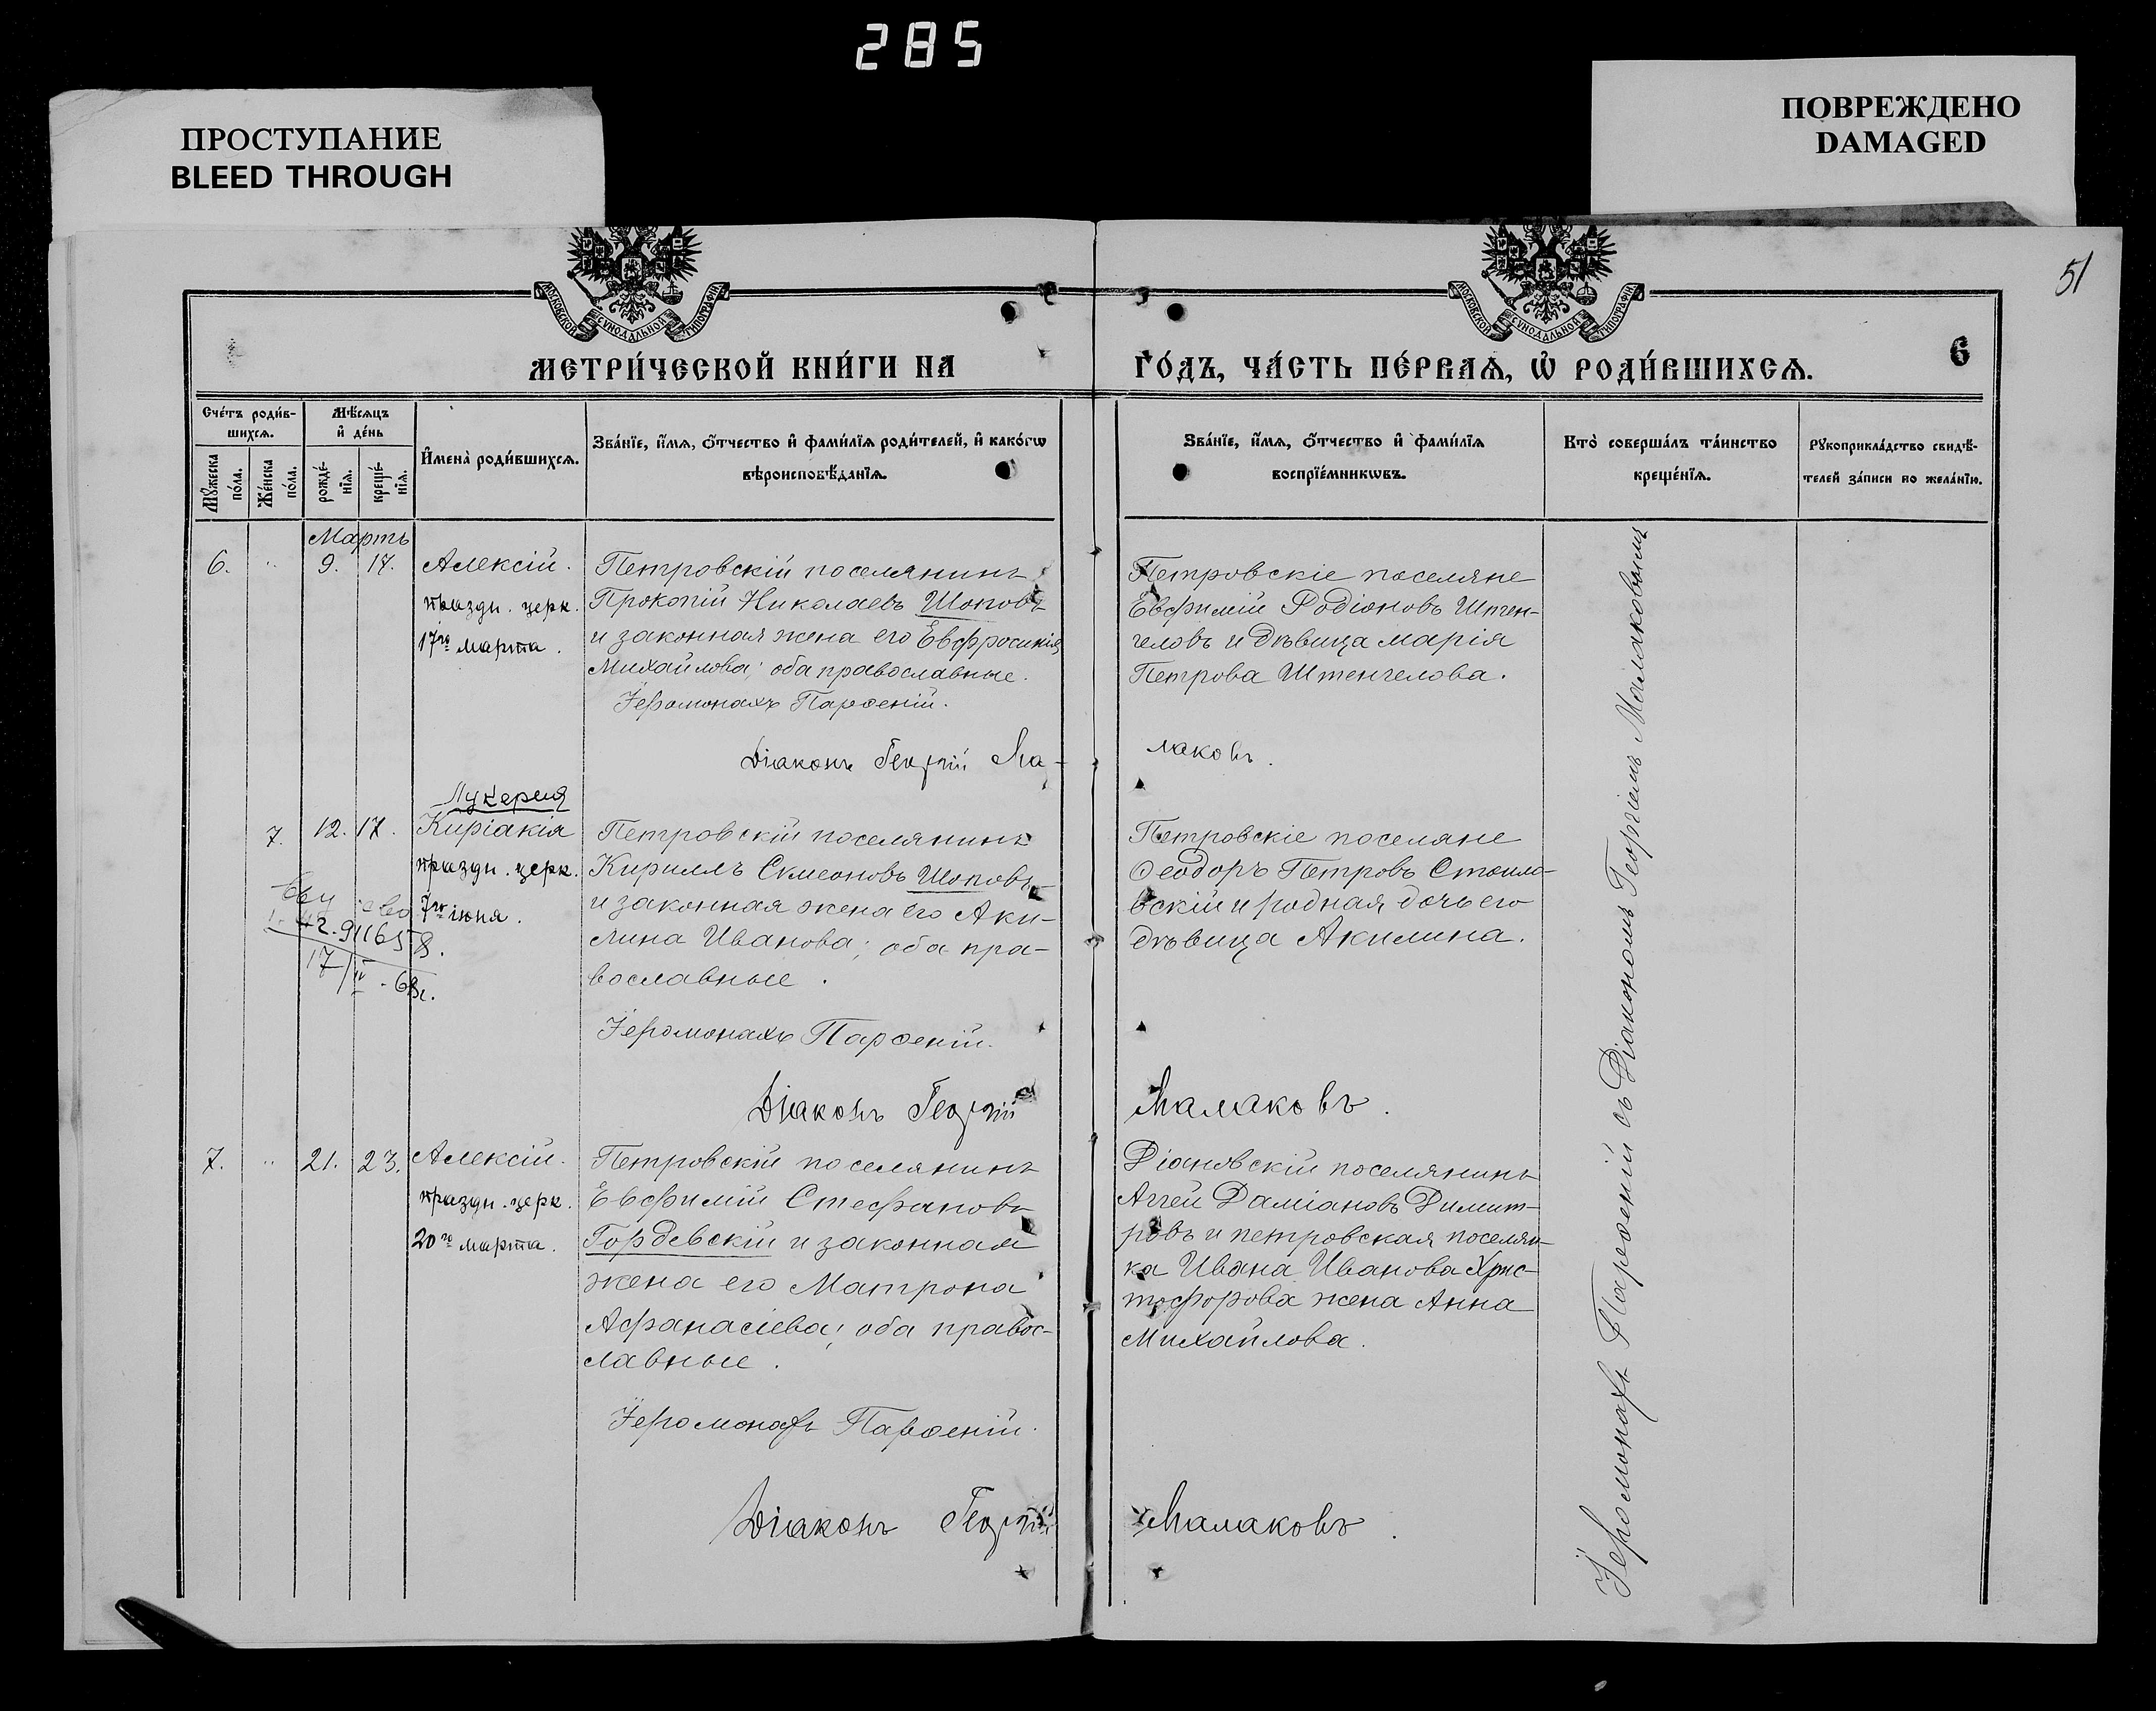 285
ПРОСТУПАНИЕ
BLEED THROUGH
ПОВРЕЖДЕНО
DAMAGED
51
МОСКОВСКОЙ СѴНОДАЛЬНОЙ ТИПОГРАФІИ
МОСКОВСКОЙ СѴНОДАЛЬНОЙ ТИПОГРАФІИ
МЕТРИ́ЧЕСКОЙ КНИ́ГИ НА
ГО́ДЪ, ЧА́СТЬ ПЕ́РВАѦ, Ѽ РОДИ́ВШИХСѦ.
6
Сче́тъ роди́в-
шихсѧ.
Мꙋ́жеска
по́ла.
Же́нска
по́ла.
Мѣ́сѧцъ
и҆ де́нь
рожде́-
нїѧ.
креще́-
нїѧ.
И҆мена̀ роди́вшихсѧ.
Зва́нїе, и҆́мѧ, ѻ҆́тчество и҆ фами́лїѧ роди́телей, и҆ како́гѡ
вѣроисповѣ́данїѧ.
Зва́нїе, и҆́мѧ, ѻ҆́тчество и҆ фами́лїѧ
воспрїе́мникѡвъ.
Кто̀ соверша́лъ та́инство
креще́нїѧ.
Рꙋкоприкла́дство свидѣ́-
телей за́писи по жела́нїю.
Мартъ
6. „ 9. 17. Алексій.
праздн. церк.
17го марта.
Петровскій поселянинъ
Прокопій Николаевъ Шоповъ
и законная жена его Евфросинія
Михайлова; оба православные.
Іеромонахъ Парѳеній.
Діаконъ Георгій Ма-
Петровскіе поселяне
Евфимій Родіоновъ Штен-
геловъ и дѣвица Марія
Петрова Штенгелова.
лаковъ.
Лукерия
7. 12. 17. Киріакія
праздн. церк.
7го іюня.
17/IV - 68г.
Петровскій поселянинъ
Кириллъ Симеоновъ Шоповъ
и законная жена его Аки-
лина Иванова; оба пра-
вославные.
Іеромонахъ Парѳеній.
Діаконъ Георгій
Петровскіе поселяне
Ѳеодоръ Петровъ Стоило-
вскій и родная дочь его
дѣвица Акилина.
Малаковъ.
7. „ 21. 23. Алексій.
праздн. церк.
20го марта.
Петровскій поселянинъ
Евфимій Стефановъ
Гордевскій и законная
жена его Матрона
Афанасіева; оба правос-
лавные.
Іеромонахъ Парѳеній.
Діаконъ Георгій
Діановскій поселянинъ
Аггей Даміановъ Димит-
ровъ и петровская поселян-
ка Ивана Иванова Хрис-
тофорова жена Анна
Михайлова.
Малаковъ.
Іеромонахъ Парѳеній съ Діакономъ Георгіемъ Малаковымъ